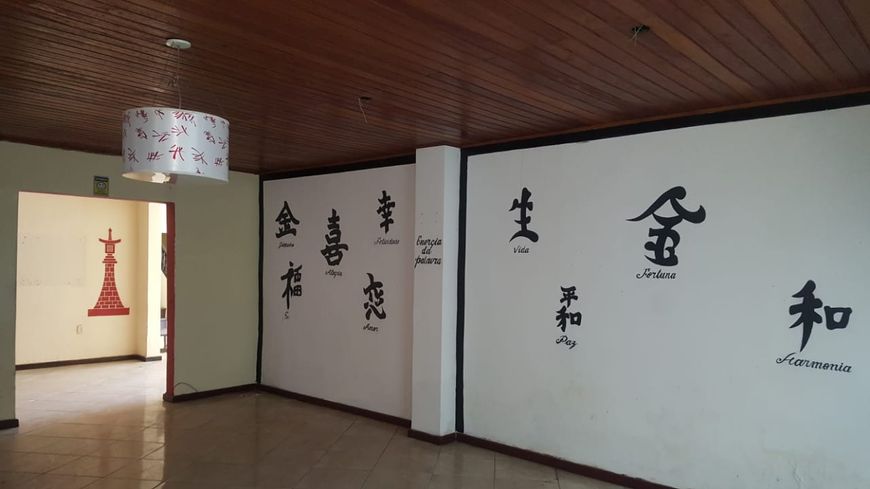 金
喜
Alegria
幸
Felicidade
福
恋
Amor
Energia
da
palavra
生
Vida
金
Fortuna
平
和
Paz
和
Harmonia